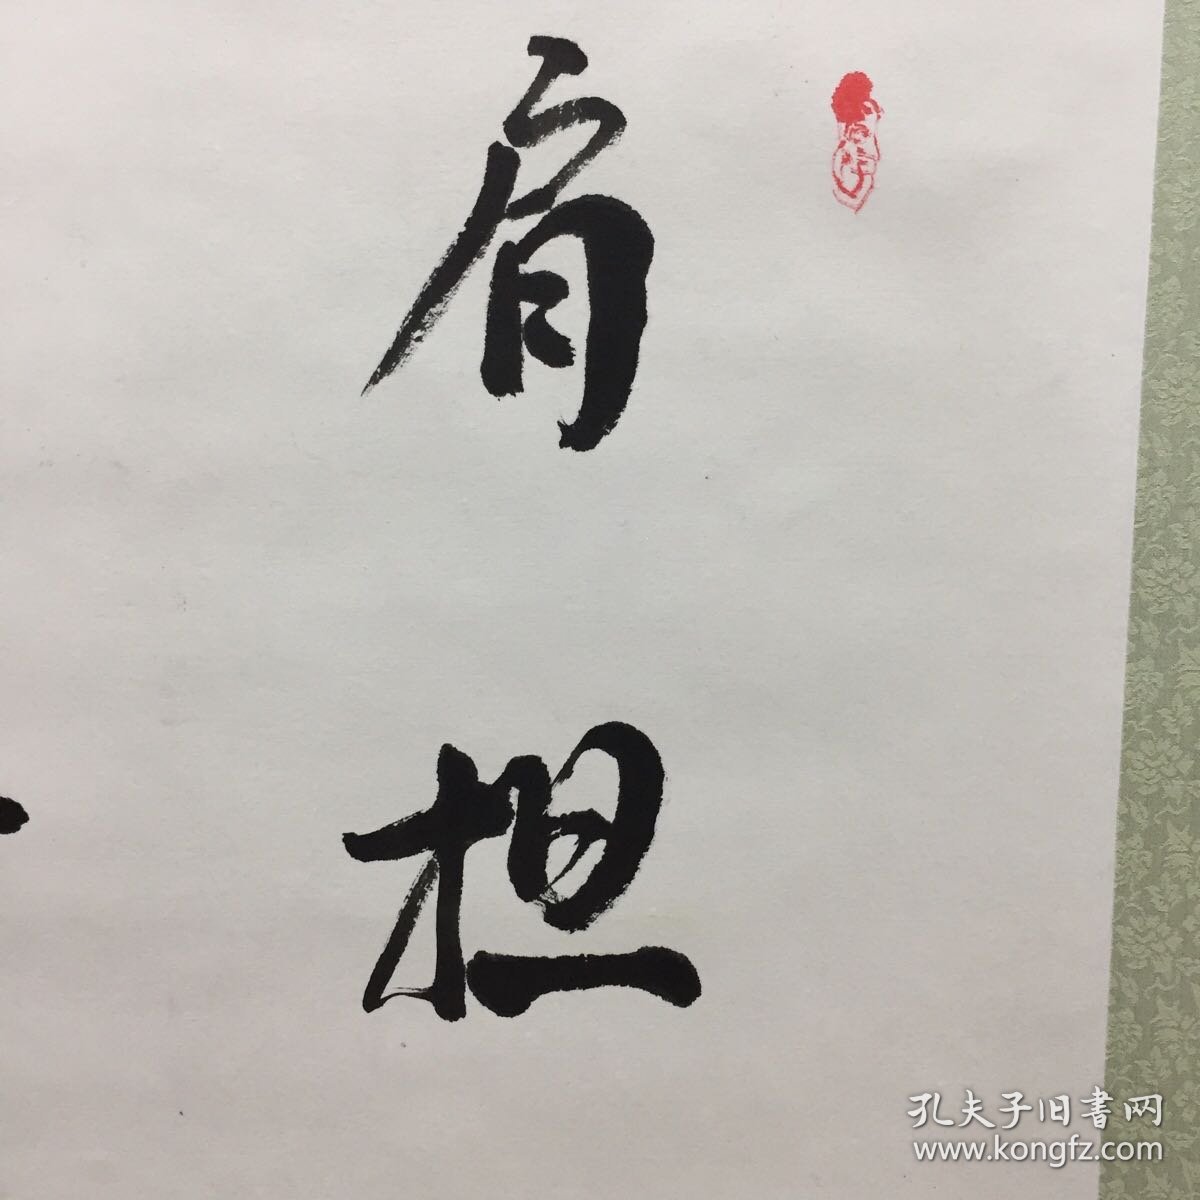 肩担
孔夫子旧書网
www.kongfz.com